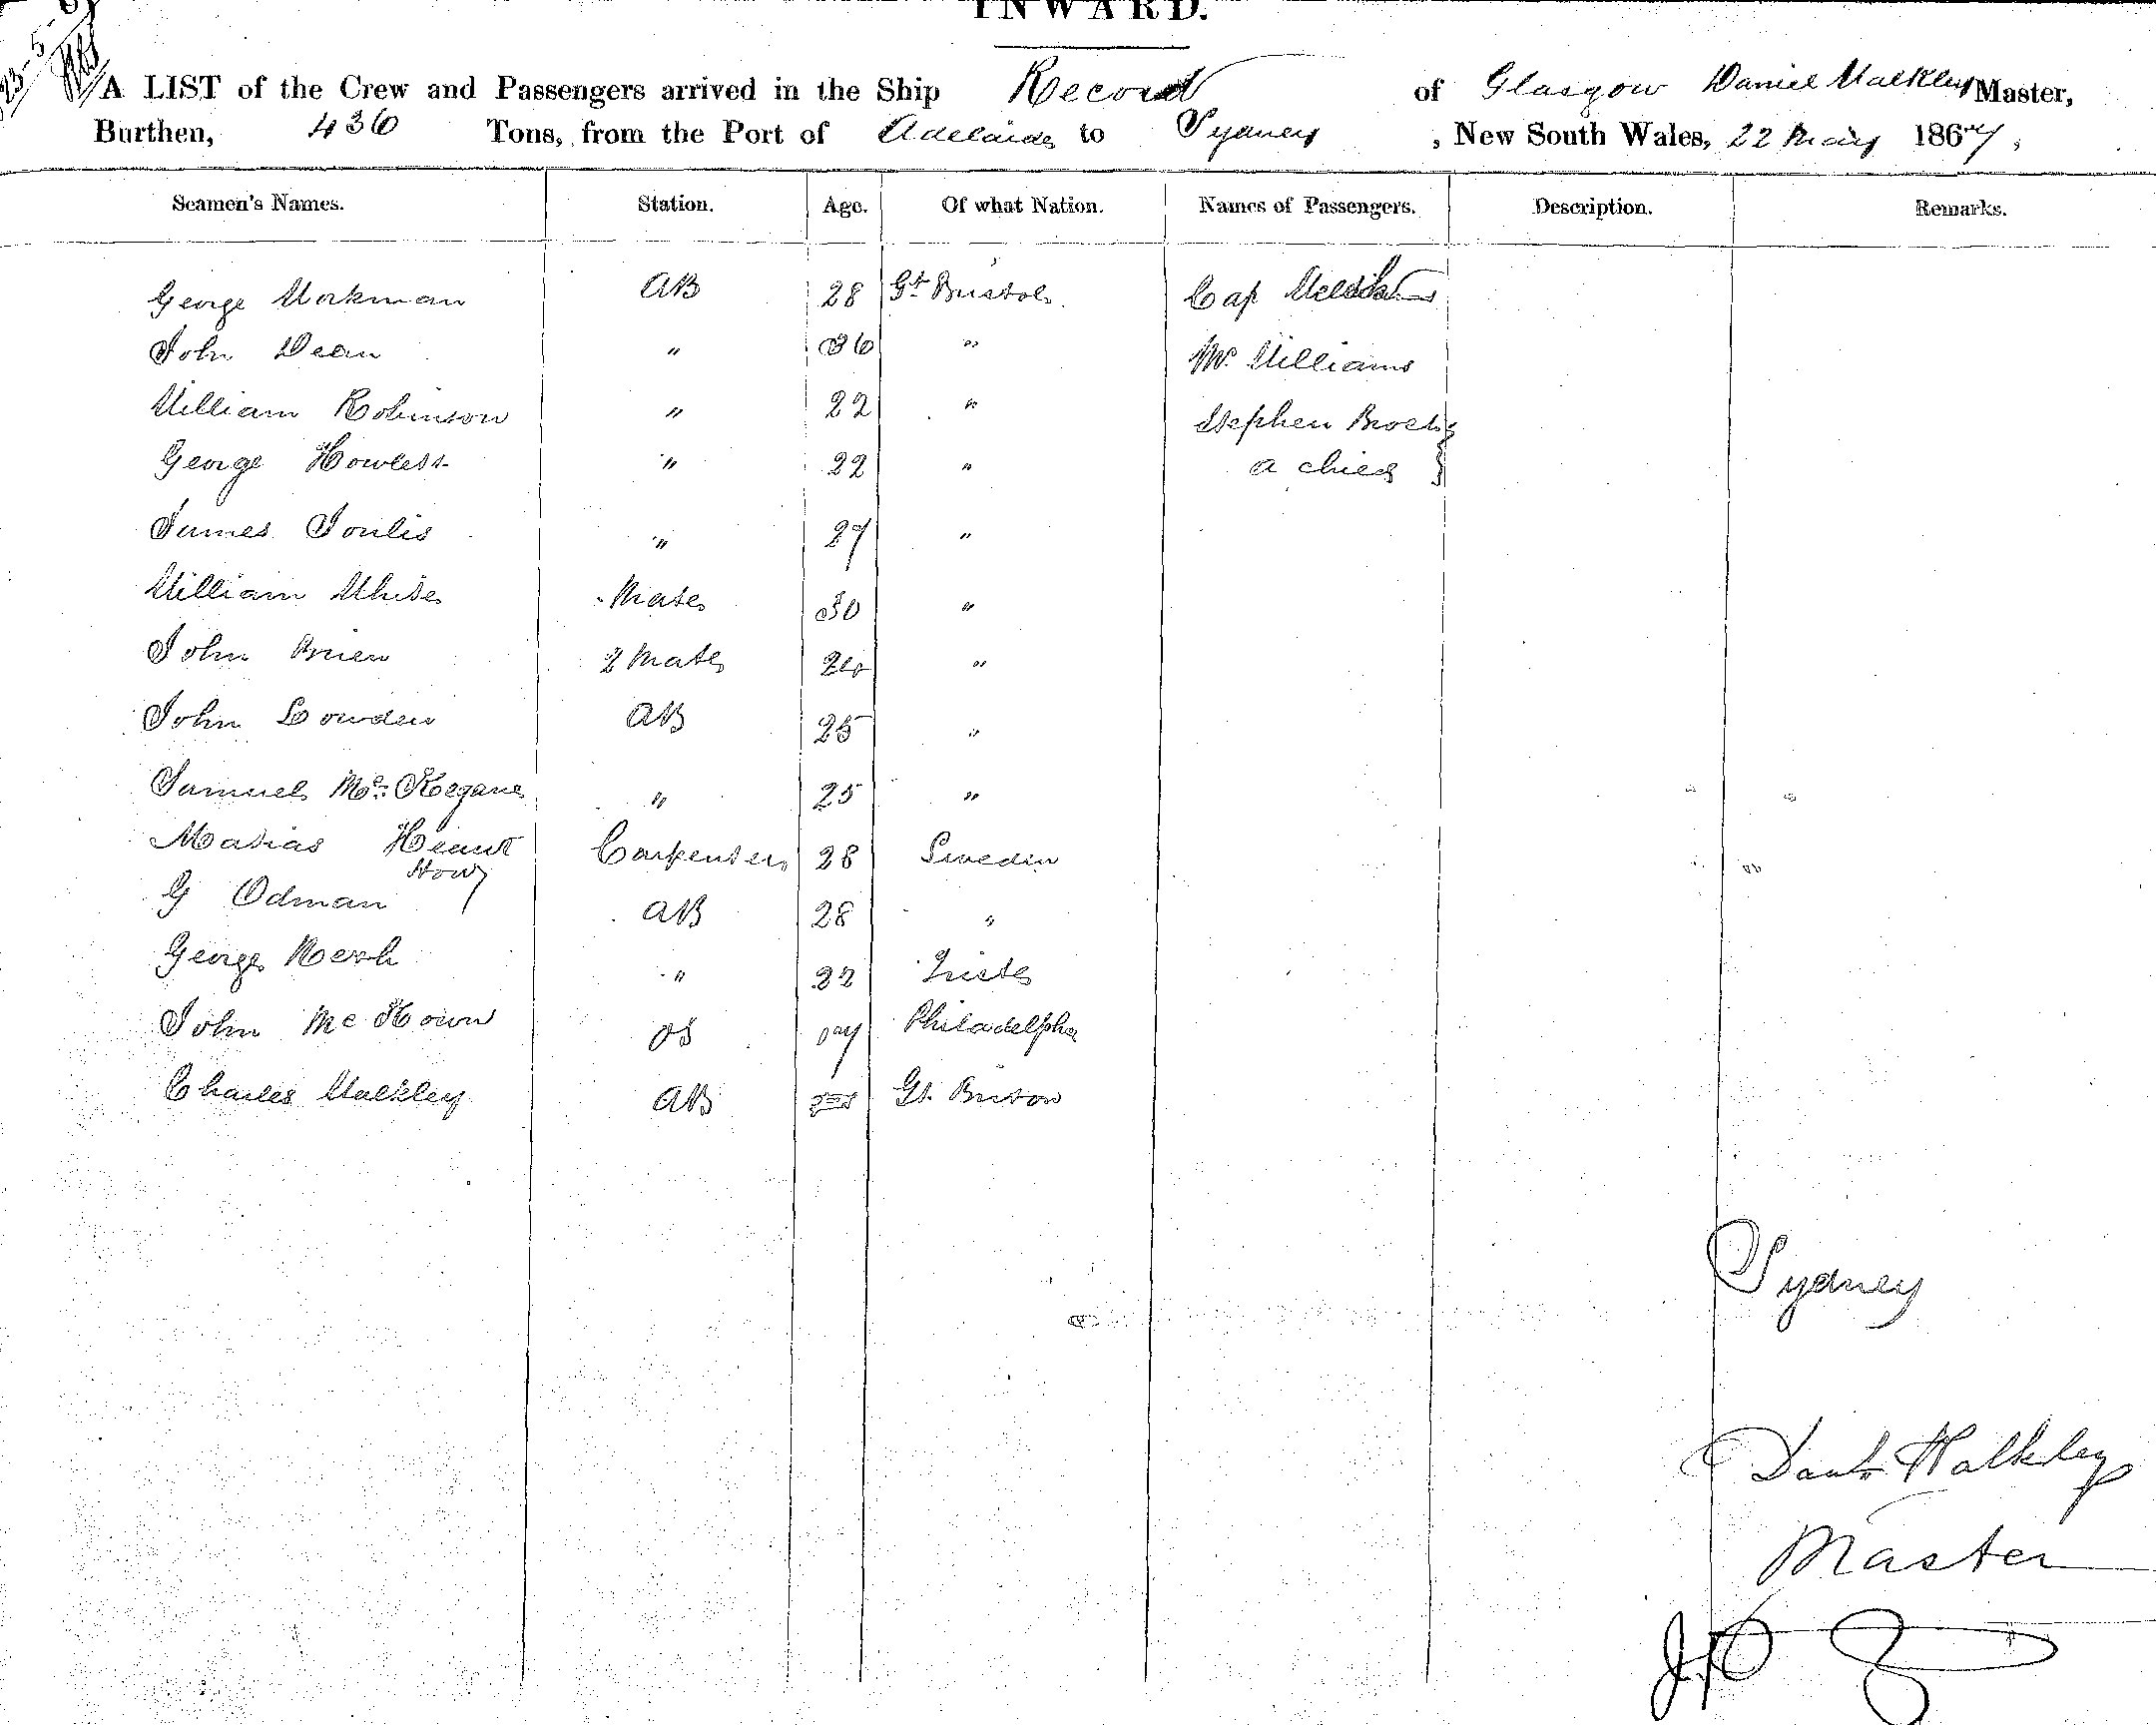 INWARD.
A LIST of the Crew and Passengers arrived in the Ship Record of Glasgow Daniel Walkley Master,
Burthen, 436 Tons, from the Port of Adelaide to Sydney, New South Wales, 22 May 1867,
Seamen's Names. Station. Age. Of what Nation. Names of Passengers. Description. Remarks.
George Workman AB 28 Gt Cap
John Dean " 36 " Mr. Williams
William Robinson " 22 " Stephen
George Howlett " 22 " a child
James " 27 "
William White Mate 30 "
John 2 Mate "
John Lowden AB 25 "
Samuel Mc. " 25 "
Matias Carpenter 28 Sweden
G Odman AB 28 "
George " 22
John Mc OS Philadelphia
Charles Walkley AB Gt. Briton
Sydney
Danl. Walkley
Master